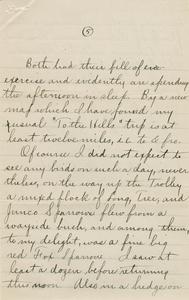 (5)
Both had their fill of ice
exercise and evidently are spending
the afternoon in sleep. By a new
map which I have found my
usual "To the Hills" trip is at
least twelve miles, to &
Of course I did not expect to
see any birds on such a day, never
theless, on the way up the Trolley
a mixed flock of Song, Tree, and
Junco Sparrows flew from a
wayside bush, and among them,
to my delight, was a fine big
red Fox Sparrow. I saw at
least a dozen before returning
this noon. Also in a hedge on